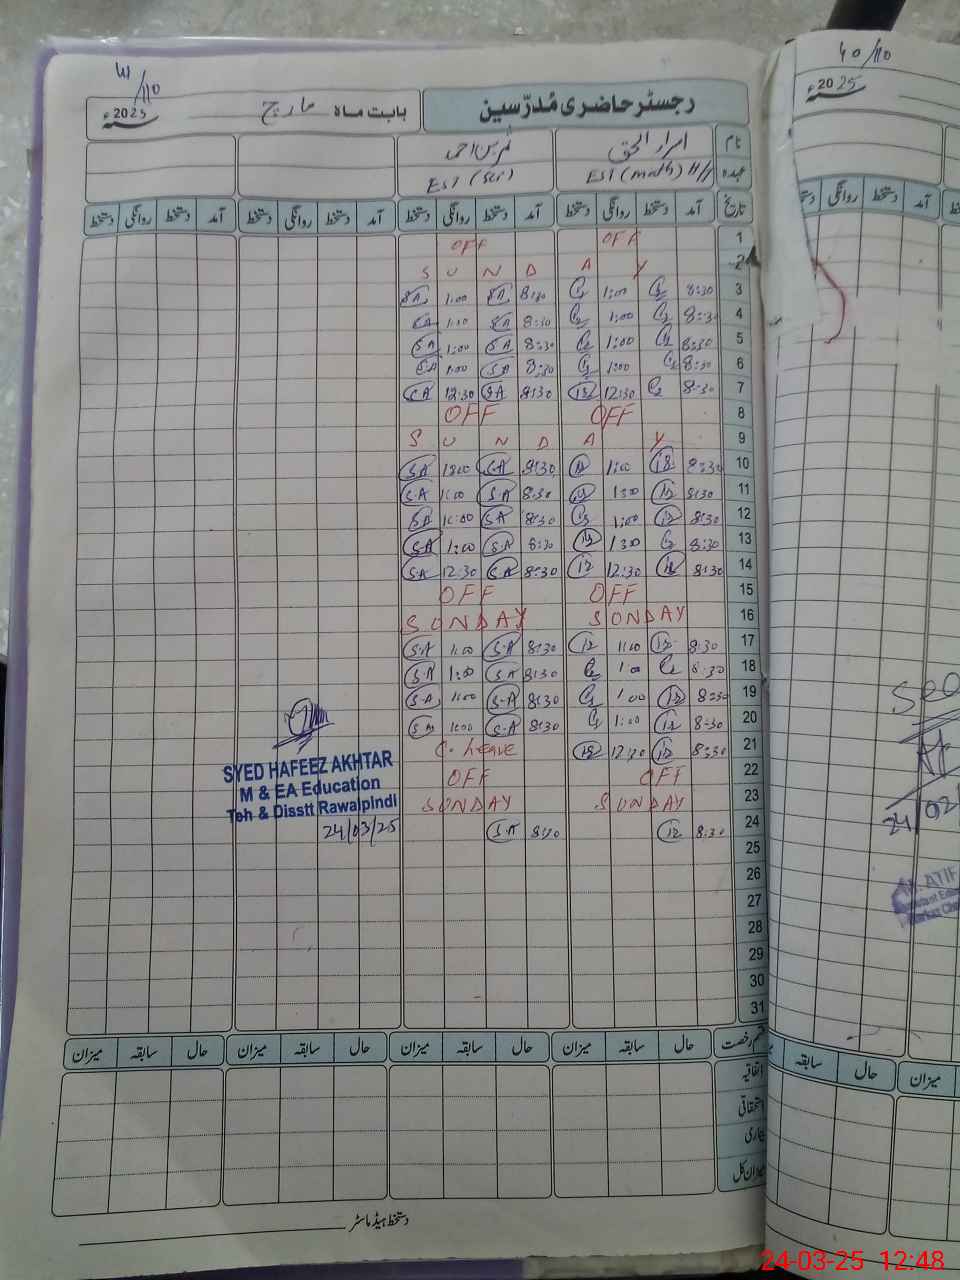 41/110
رجسٹر حاضری مُدرّسین
بابت ماہ مارچ 2025ء
نام اسرار الحق
عہدہ EST (math) EST (sci)
تاریخ آمد دستخط روانگی دستخط آمد دستخط روانگی دستخط آمد دستخط روانگی دستخط آمد دستخط روانگی دستخط
1 OFF OFF
2 S U N D A Y
3 8:30 1:00 8:30 SA 1:00 SA
4 8:30 1:00 8:30 SA 1:00 SA
5 8:30 1:00 8:30 SA 1:00 SA
6 8:30 1:00 8:30 SA 1:00 SA
7 8:30 12:30 8:30 SA 12:30 SA
8 OFF OFF
9 S U N D A Y
10 8:30 1:00 8:30 S.A 1:00 S.A
11 8:30 1:00 8:30 S.A 1:00 S.A
12 8:30 1:00 8:30 S.A 1:00 S.A
13 8:30 1:00 8:30 S.A 1:00 S.A
14 8:30 12:30 8:30 S.A 12:30 S.A
15 OFF OFF
16 SUNDAY SUNDAY
17 8:30 1:00 8:30 S.A 1:00 S.A
18 8:30 1:00 8:30 S.A 1:00 S.A
19 8:30 1:00 8:30 S.A 1:00 S.A
20 8:30 1:00 8:30 S.A 1:00 S.A
21 8:30 12:30 C. leave
22 OFF OFF
23 SUNDAY SUNDAY
24 8:30 8:30 S.A
25
26
27
28
29
30
31
SYED HAFEEZ AKHTAR
M & EA Education
Teh & Disstt Rawalpindi
24/03/25
قسم رخصت حال سابقہ میزان حال سابقہ میزان حال سابقہ میزان حال سابقہ میزان
اتفاقیہ
استحقاقی
بیماری
میزان کل
دستخط ہیڈ ماسٹر
40/110
2025ء
دستخط روانگی دستخط آمد
24/02
ATIF
حال سابقہ
میزان
24-03-25 12:48